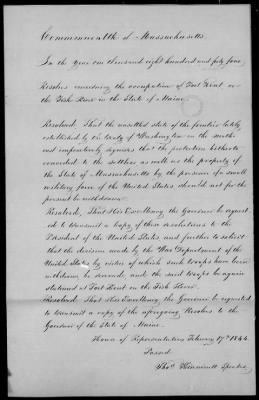 Commonwealth of Massachusetts.
In the Year one thousand eight hundred and forty four.
Resolves concerning the occupation of Fort Kent on
the Fish River in the State of Maine.
Resolved, That the unsettled state of the frontier lately
established by the treaty of Washington in the north
east imperatively requires that the protection hitherto
extended to the settlers as well as the property of
the State of Massachusetts by the presence of a small
military force of the United States should not for the
present be withdrawn.
Resolved, That His Excellency the Governor be request
ed to transmit a Copy of these resolutions to the
President of the United States and further to solicit
that the decision made by the War Department of the
United States by virtue of which such troops have been
withdrawn, be reversed, and the said troops be again
stationed at Fort Kent on the Fish River.
Resolved That His Excellency the Governor be requested
to transmit a copy of the aforegoing Resolves to the
Governor of the State of Maine.
House of Representatives February 17th 1844.
Passed
Thos Kinnicutt Speaker